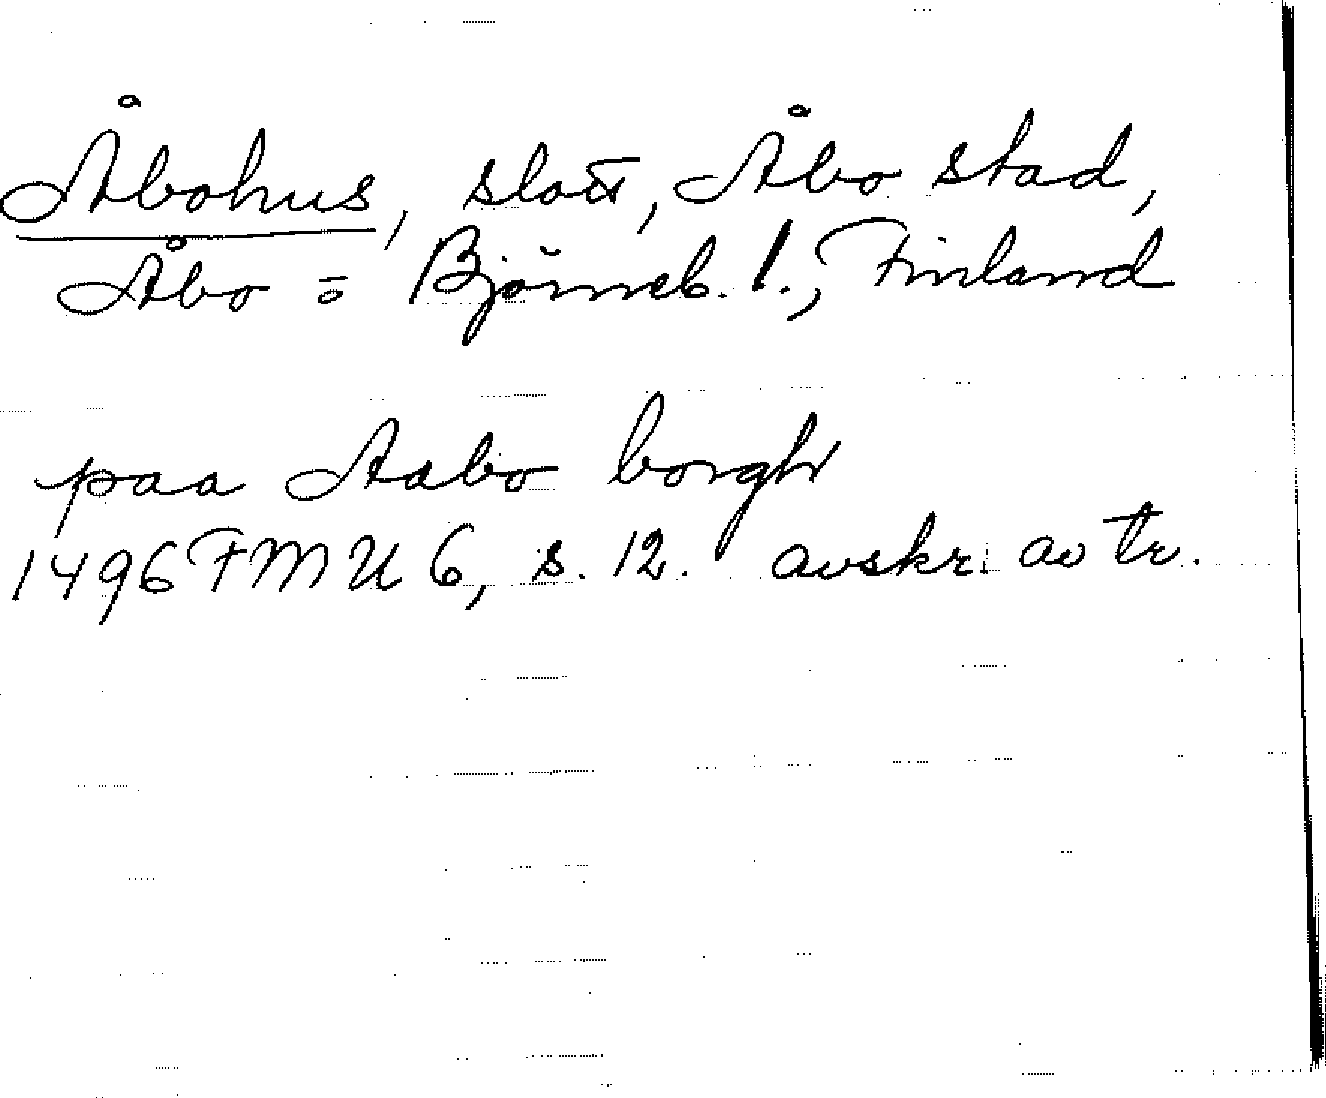 Åbohus, slott, Åbo stad,
Åbo o Björneb. l., Finland
paa Aabo borgh
1496 FMU 6, s. 12. avskr. av tr.